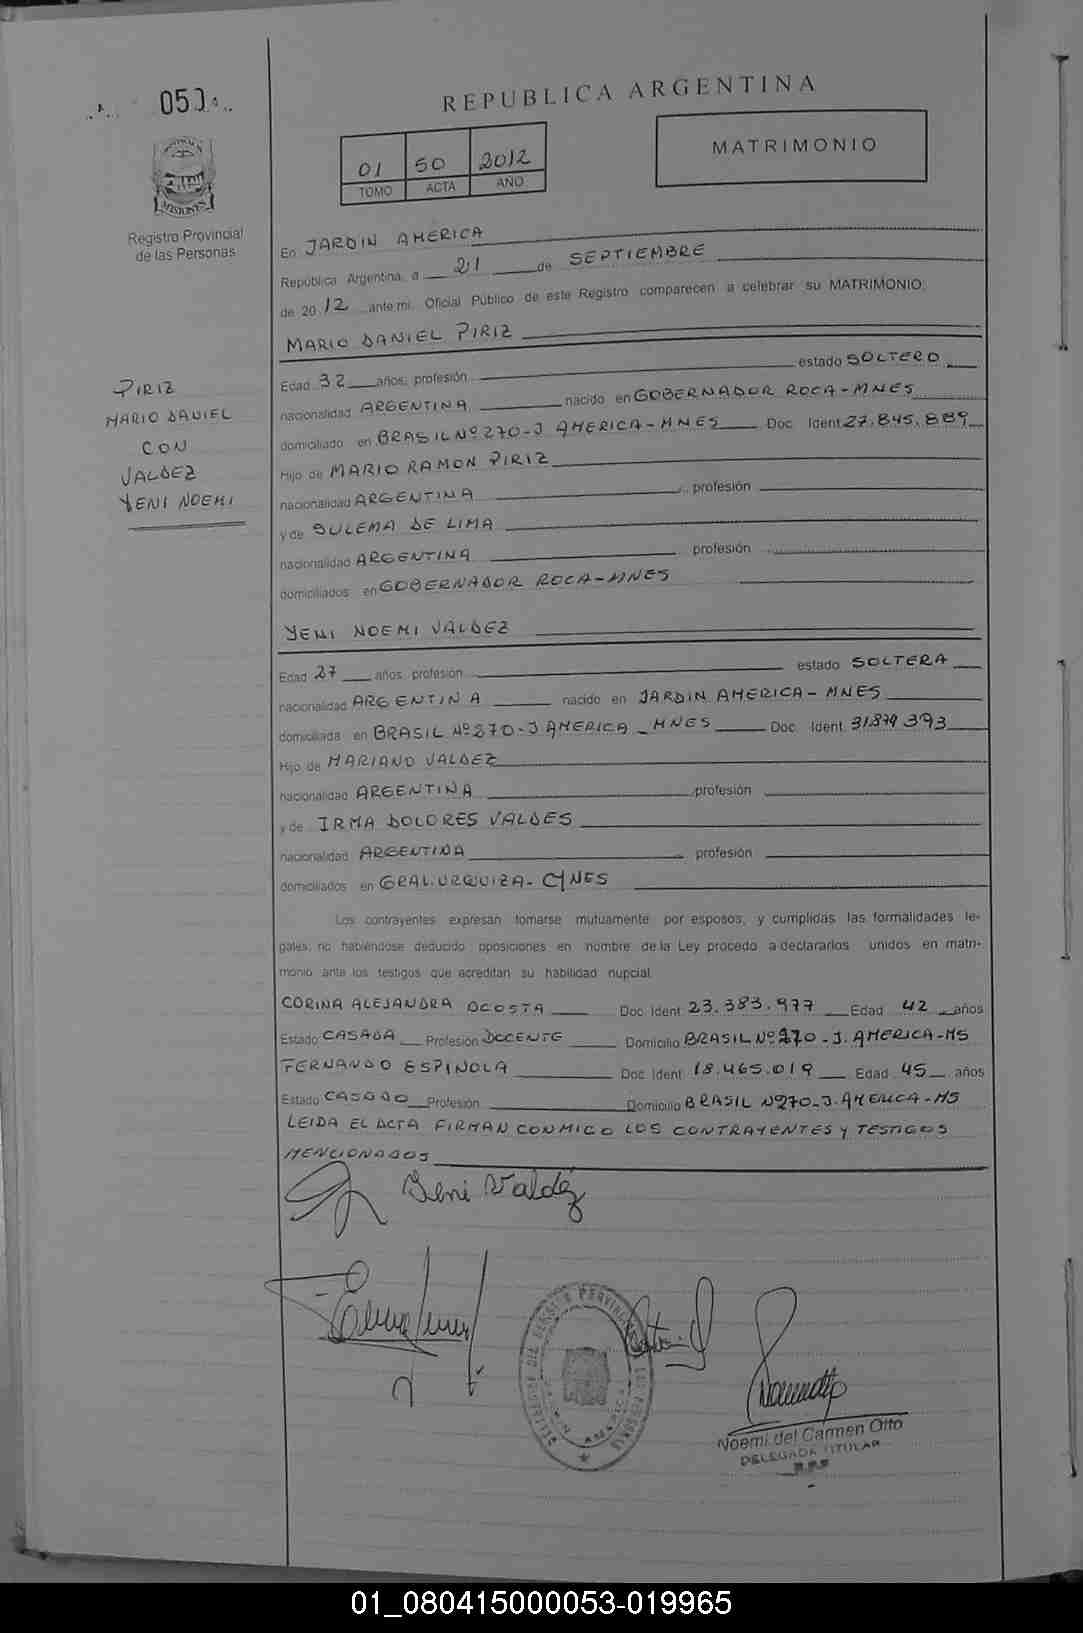 050
REPUBLICA ARGENTINA
01 50 2012
TOMO ACTA AÑO
MATRIMONIO
MISIONES
Registro Provincial
de las Personas
En JARDIN AMERICA
República Argentina, a 21 de SEPTIEMBRE
de 20 12 ante mi, Oficial Público de este Registro comparecen a celebrar su MATRIMONIO:
MARIO DANIEL PIRIZ
PIRIZ
MARIO DANIEL
CON
VALDEZ
YENI NOEMI
Edad 32 años, profesión estado SOLTERO
nacionalidad ARGENTINA nacido en GOBERNADOR ROCA-MNES
domiciliado en BRASIL Nº 270-J AMERICA-MNES Doc. Ident 27.845.889
Hijo de MARIO RAMON PIRIZ
nacionalidad ARGENTINA profesión
y de SULEMA DE LIMA
nacionalidad ARGENTINA profesión
domiciliados en GOBERNADOR ROCA-MNES
YENI NOEMI VALDEZ
Edad 27 años profesión estado SOLTERA
nacionalidad ARGENTINA nacido en JARDIN AMERICA-MNES
domiciliada en BRASIL Nº 270-J AMERICA-MNES Doc. Ident. 31.879.393
Hijo de MARIANO VALDEZ
nacionalidad ARGENTINA profesión
y de IRMA DOLORES VALDES
nacionalidad ARGENTINA profesión
domiciliados en GRAL.URQUIZA-
Los contrayentes expresan tomarse mutuamente por esposos, y cumplidas las formalidades le-
gales, no habiéndose deducido oposiciones en nombre de la Ley procedo a declararlos unidos en matri-
monio ante los testigos que acreditan su habilidad nupcial
CORINA ALEJANDRA ACOSTA Doc. Ident 23.383.977 Edad 42 años
Estado CASADA Profesión DOCENTE Domicilio BRASIL Nº 270-J.AMERICA-MS
FERNANDO ESPINOLA Doc. Ident. 18.465.019 Edad 45 años
Estado CASADO Profesión Domicilio BRASIL Nº270-J.AMERICA-MS
LEIDA EL ACTA FIRMAN CONMIGO LOS CONTRAYENTES Y TESTIGOS
MENCIONADOS
Yeni Valdéz
Noemi del Carmen Otto
DELEGADA TITULAR
01_080415000053-019965